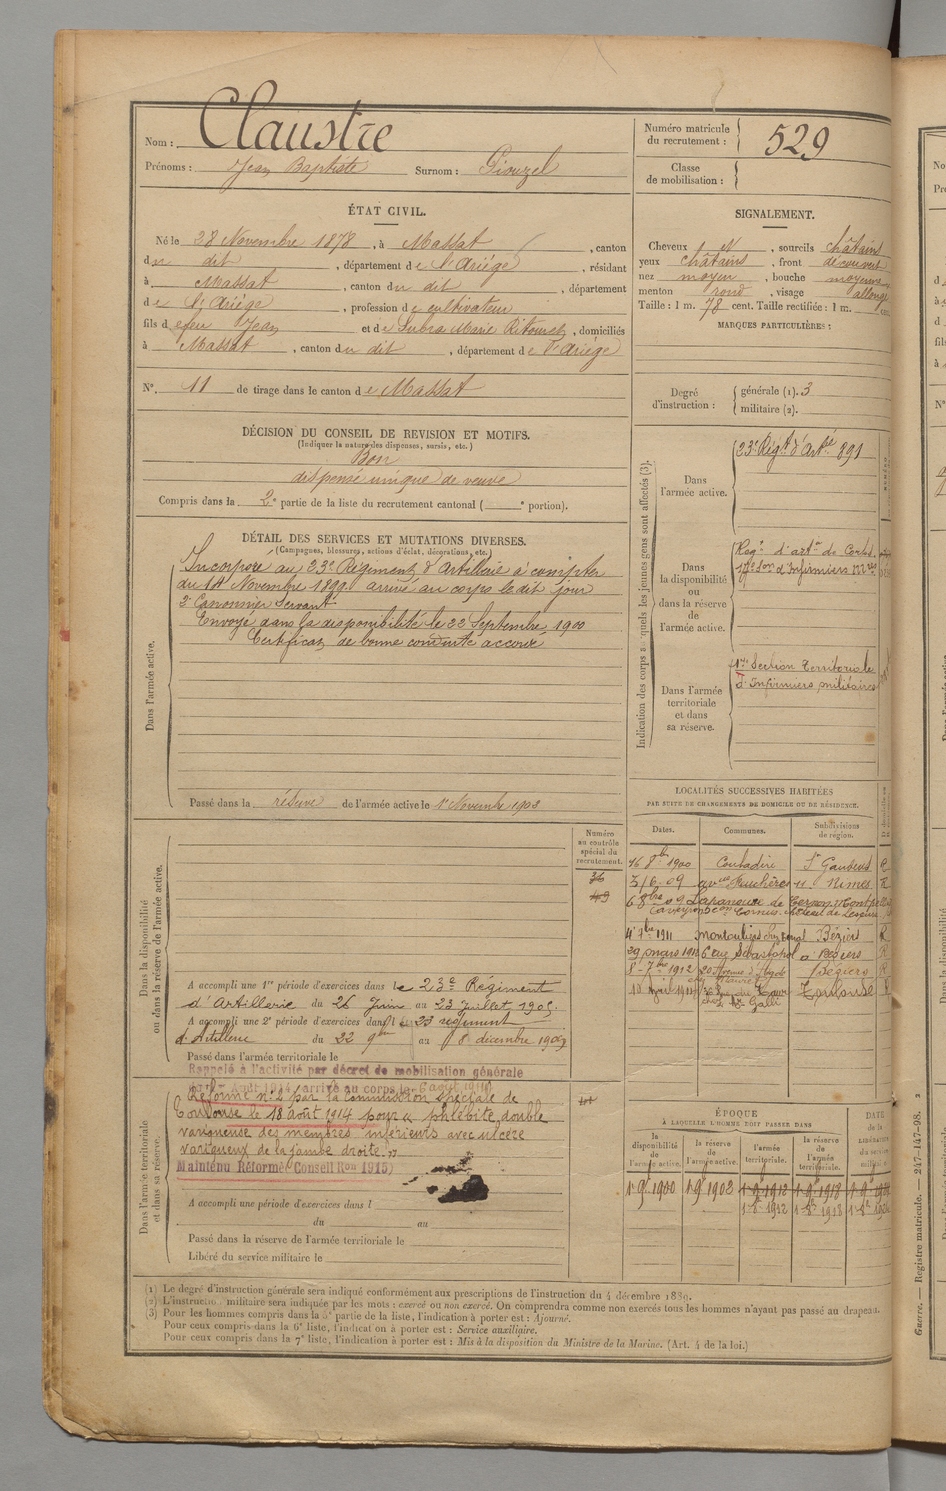 Nom : Claustre
Prénoms : Jean Baptiste Surnom : Piouzel
ÉTAT CIVIL.
Né le 28 Novembre 1878, à Massat, canton
du dit, département de l'Ariège, résidant
à Massat, canton du dit, département
de l'Ariège, profession de cultivateur
fils de feu Jean et de Subra Marie Ritouret, domiciliés
à Massat, canton du dit, département de l'Ariège
N° 11 de tirage dans le canton de Massat
DÉCISION DU CONSEIL DE REVISION ET MOTIFS.
(Indiquer la nature des dispenses, sursis, etc.)
Bon
dispensé unique de veuve
Compris dans la 2e partie de la liste du recrutement cantonal ( e portion).
DÉTAIL DES SERVICES ET MUTATIONS DIVERSES.
(Campagnes, blessures, actions d'éclat, décorations, etc.)
Dans l'armée active.
Incorporé au 23e Régiment d'Artillerie à compter
du 14 Novembre 1899. arrivé au corps le dit jour
2e Canonnier Servant
Envoyé dans la disponibilité le 22 Septembre 1900
Certificat de bonne conduite accordé
Passé dans la réserve de l'armée active le 1er Novembre 1902
Dans la disponibilité
ou dans la réserve de l'armée active.
Numéro
au contrôle
spécial du
recrutement.
36
49
A accompli une 1re période d'exercices dans le 23e Régiment
d'Artillerie du 26 Juin au 23 Juillet 1905.
A accompli une 2e période d'exercices dans le 23 régiment
d'Artillerie du 22 9bre au 8 décembre 1909
Passé dans l'armée territoriale le
Rappelé à l'activité par décret de mobilisation générale
du 1er Août 1914, arrivé au corps le 6 août 1914
Dans l'armée territoriale
et dans sa réserve.
Réformé n° 2 par la Commission spéciale de
Toulouse le 18 août 1914 pour « phlébite double
variqueuse des membres inférieurs avec ulcère
variqueux de la jambe droite. »
Maintenu Réformé (Conseil Ron 1915)
A accompli une période d'exercices dans l
du au
Passé dans la réserve de l'armée territoriale le
Libéré du service militaire le
Numéro matricule
du recrutement : 529
Classe
de mobilisation :
SIGNALEMENT.
Cheveux N, sourcils châtains
yeux châtains, front découvert
nez moyen, bouche moyenne
menton rond, visage allongé
Taille : 1 m. 78 cent. Taille rectifiée : 1 m. cent.
MARQUES PARTICULIÈRES :
Degré
d'instruction :
générale (1). 3
militaire (2).
Indication des corps auxquels les jeunes gens sont affectés (3).
Dans
l'armée active.
23e Régt d'Artie 891
Dans
la disponibilité
ou
dans la réserve
de
l'armée active.
Regt d'artie de Cortad.
17e Son d'Infirmiers
Dans l'armée
territoriale
et dans
sa réserve.
17e Section Territoriale
d'Infirmiers militaires
LOCALITÉS SUCCESSIVES HABITÉES
PAR SUITE DE CHANGEMENTS DE DOMICILE OU DE RÉSIDENCE.
Dates. Communes. Subdivisions
de région.
16 8bre 1900 St Gaudens R
3/6-09 Nîmes R
6 8bre 09 Lapanouse de Cernon
Aveyron Con Cornus
4 7bre 1911 Montouliers Béziers R
29 mars 1912 6 rue Sébastopol à Béziers R
8-7bre 1912 Béziers R
Toulouse R
ÉPOQUE
À LAQUELLE L'HOMME DOIT PASSER DANS
la
disponibilité
de
l'armée active.
la réserve
de
l'armée active.
l'armée
territoriale.
la réserve
de
l'armée
territoriale.
DATE
de la
LIBÉRATION
du service
militaire
1-9bre 1900 1-9bre 1902 1-9-1912 1-9-1918
1-8bre 1912 1-8bre 1918
(1) Le degré d'instruction générale sera indiqué conformément aux prescriptions de l'instruction du 4 décembre 1889.
(2) L'instruction militaire sera indiquée par les mots : exercé ou non exercé. On comprendra comme non exercés tous les hommes n'ayant pas passé au drapeau.
(3) Pour les hommes compris dans la 5e partie de la liste, l'indication à porter est : Ajourné.
Pour ceux compris dans la 6e liste, l'indication à porter est : Service auxiliaire.
Pour ceux compris dans la 7e liste, l'indication à porter est : Mis à la disposition du Ministre de la Marine. (Art. 4 de la loi.)
Guerre. — Registre matricule. — 247-147-98.